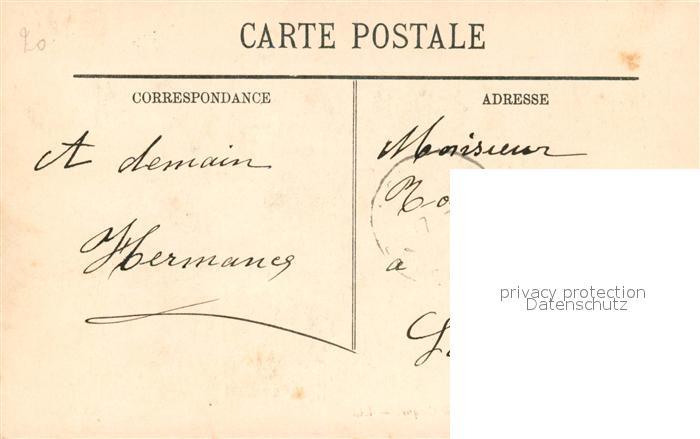 20
CARTE POSTALE
CORRESPONDANCE
A demain
Hermance
ADRESSE
Monsieur
à
privacy protection
Datenschutz